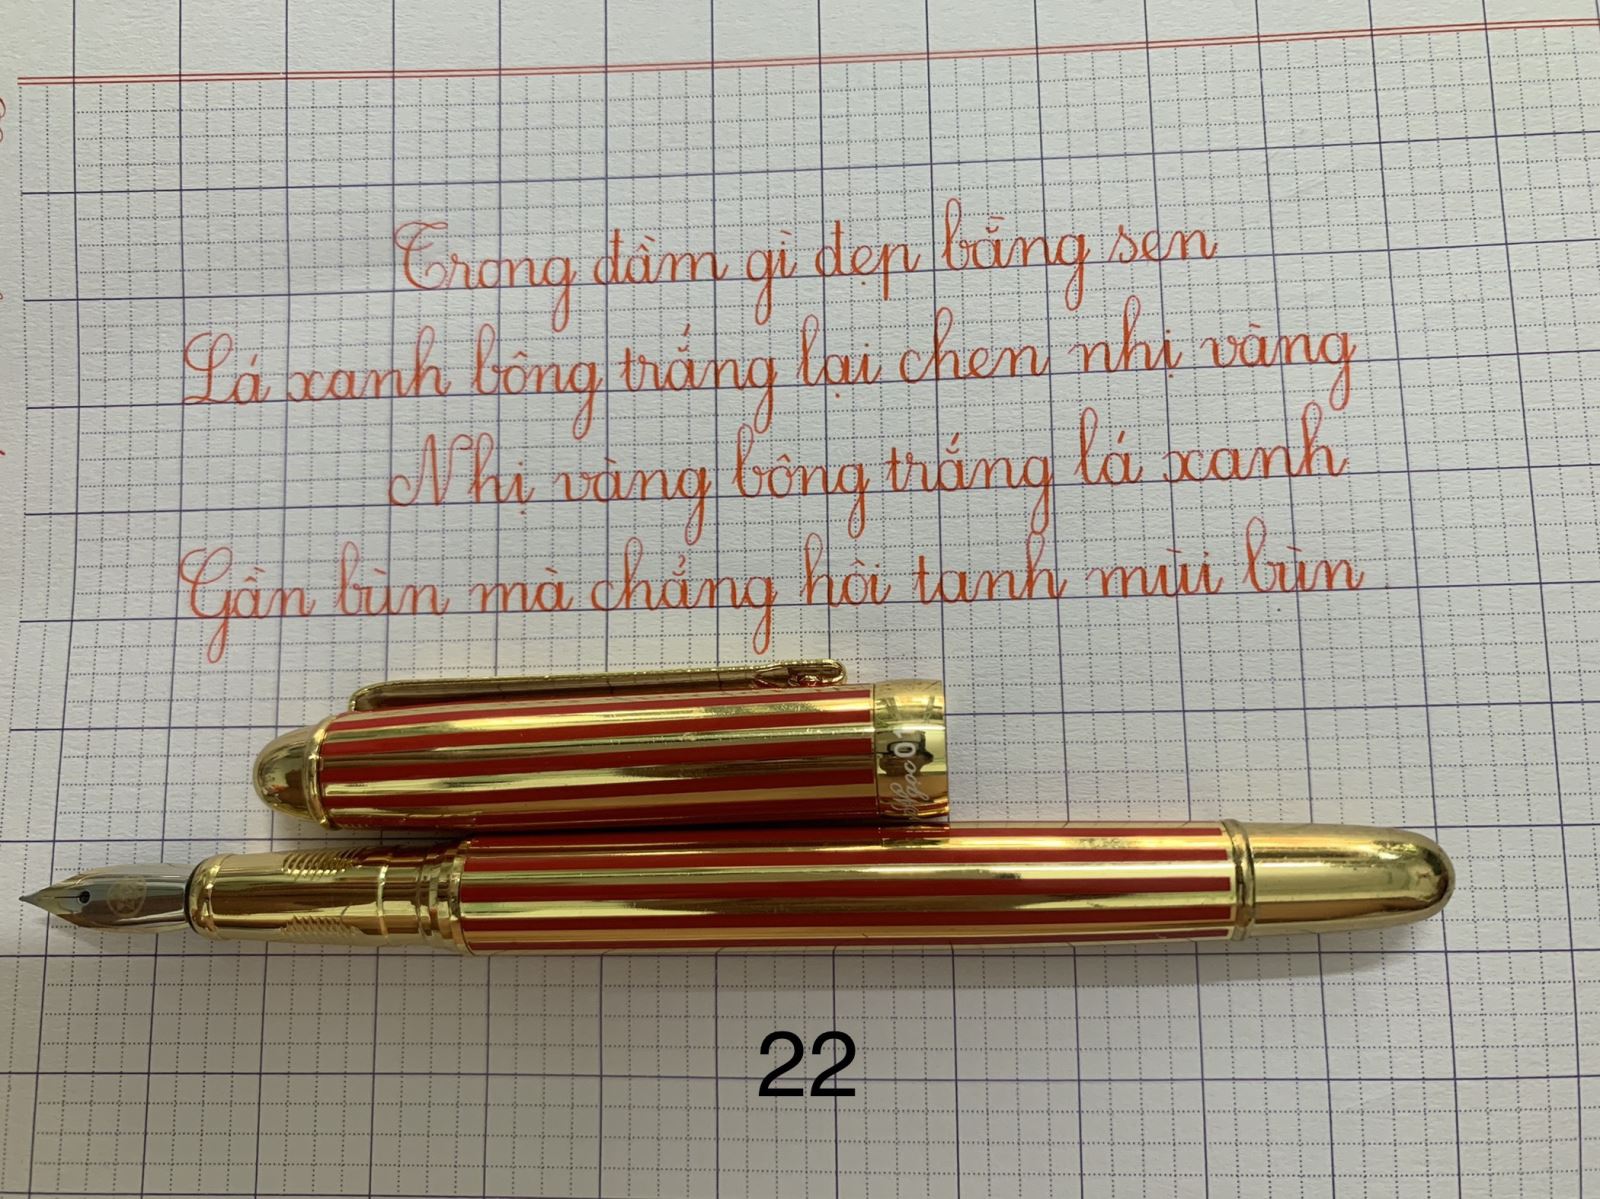 Trong đầm gì đẹp bằng sen
Lá xanh bông trắng lại chen nhị vàng
Nhị vàng bông trắng lá xanh
Gần bùn mà chẳng hôi tanh mùi bùn
Ngọc 01
22